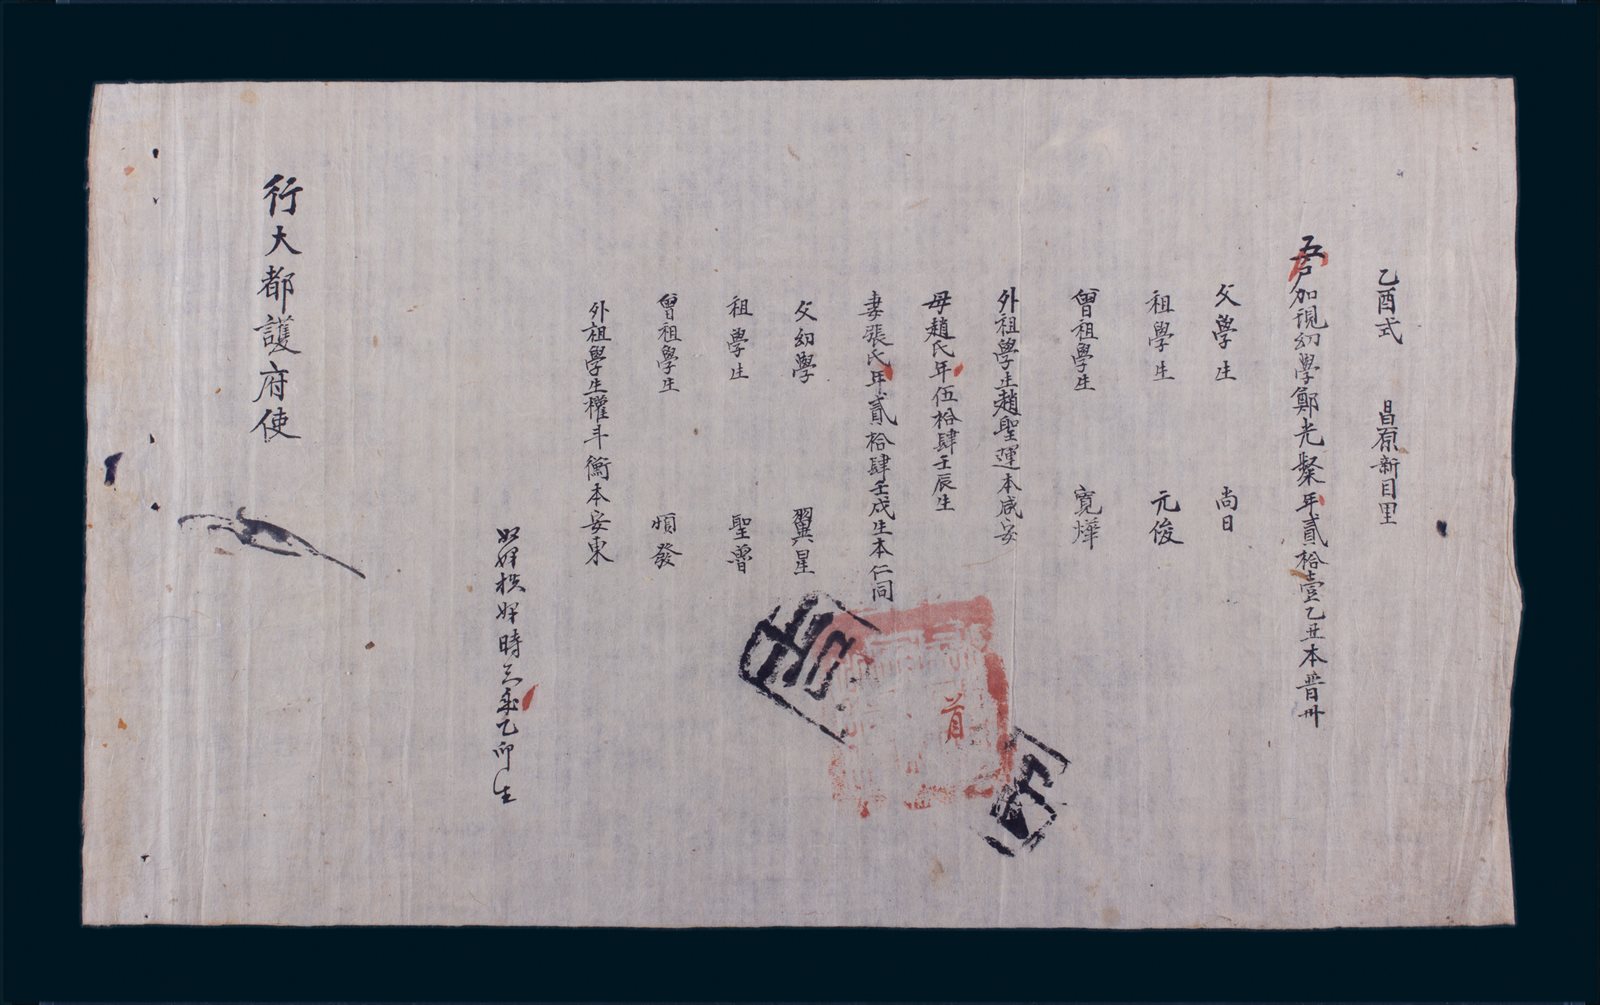 乙酉式 昌原新目里
五戶加現幼學鄭光粲年貳拾壹乙丑本晋州
父學生 尚日
祖學生 元俊
曾祖學生 寬燁
外祖學生趙聖運本咸安
母趙氏年伍拾肆壬辰生
妻張氏年貳拾肆壬戌生本仁同
父幼學 翼星
祖學生 聖魯
曾祖學生 順發
外祖學生權斗衡本安東
奴婢秩婢時 年乙卯生
行大都護府使
首